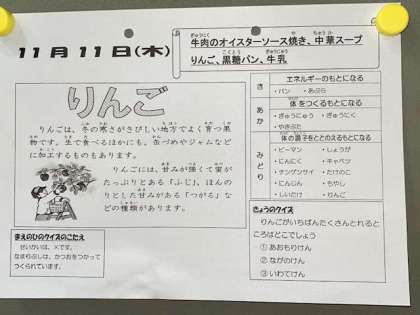 11月11日(木)
牛肉のオイスターソース焼き、中華スープ
りんご、黒糖パン、牛乳
りんご
りんごは、冬の寒さがきびしい地方でよく育つ果
物です。生で食べるほかにも、缶づめやジャムなど
に加工するものもあります。
りんごには、甘みが強くて蜜が
たっぷりとある「ふじ」、ほんの
りとした甘みがある「つがる」な
どの種類があります。
まえのひのクイズのこたえ
せいかいは、×です。
なまりぶしは、かつおをつかって
つくられています。
き
エネルギーのもとになる
・パン ・あぶら
あか
体をつくるもとになる
・ぎゅうにゅう ・ぎゅうにく
・やきぶた
みどり
体の調子をととのえるもとになる
・ピーマン ・しょうが
・にんにく ・キャベツ
・チンゲンサイ ・たけのこ
・にんじん ・もやし
・しいたけ ・りんご
きょうのクイズ
りんごがいちばんたくさんとれると
ころはどこでしょう
①あおもりけん
②ながのけん
③いわてけん